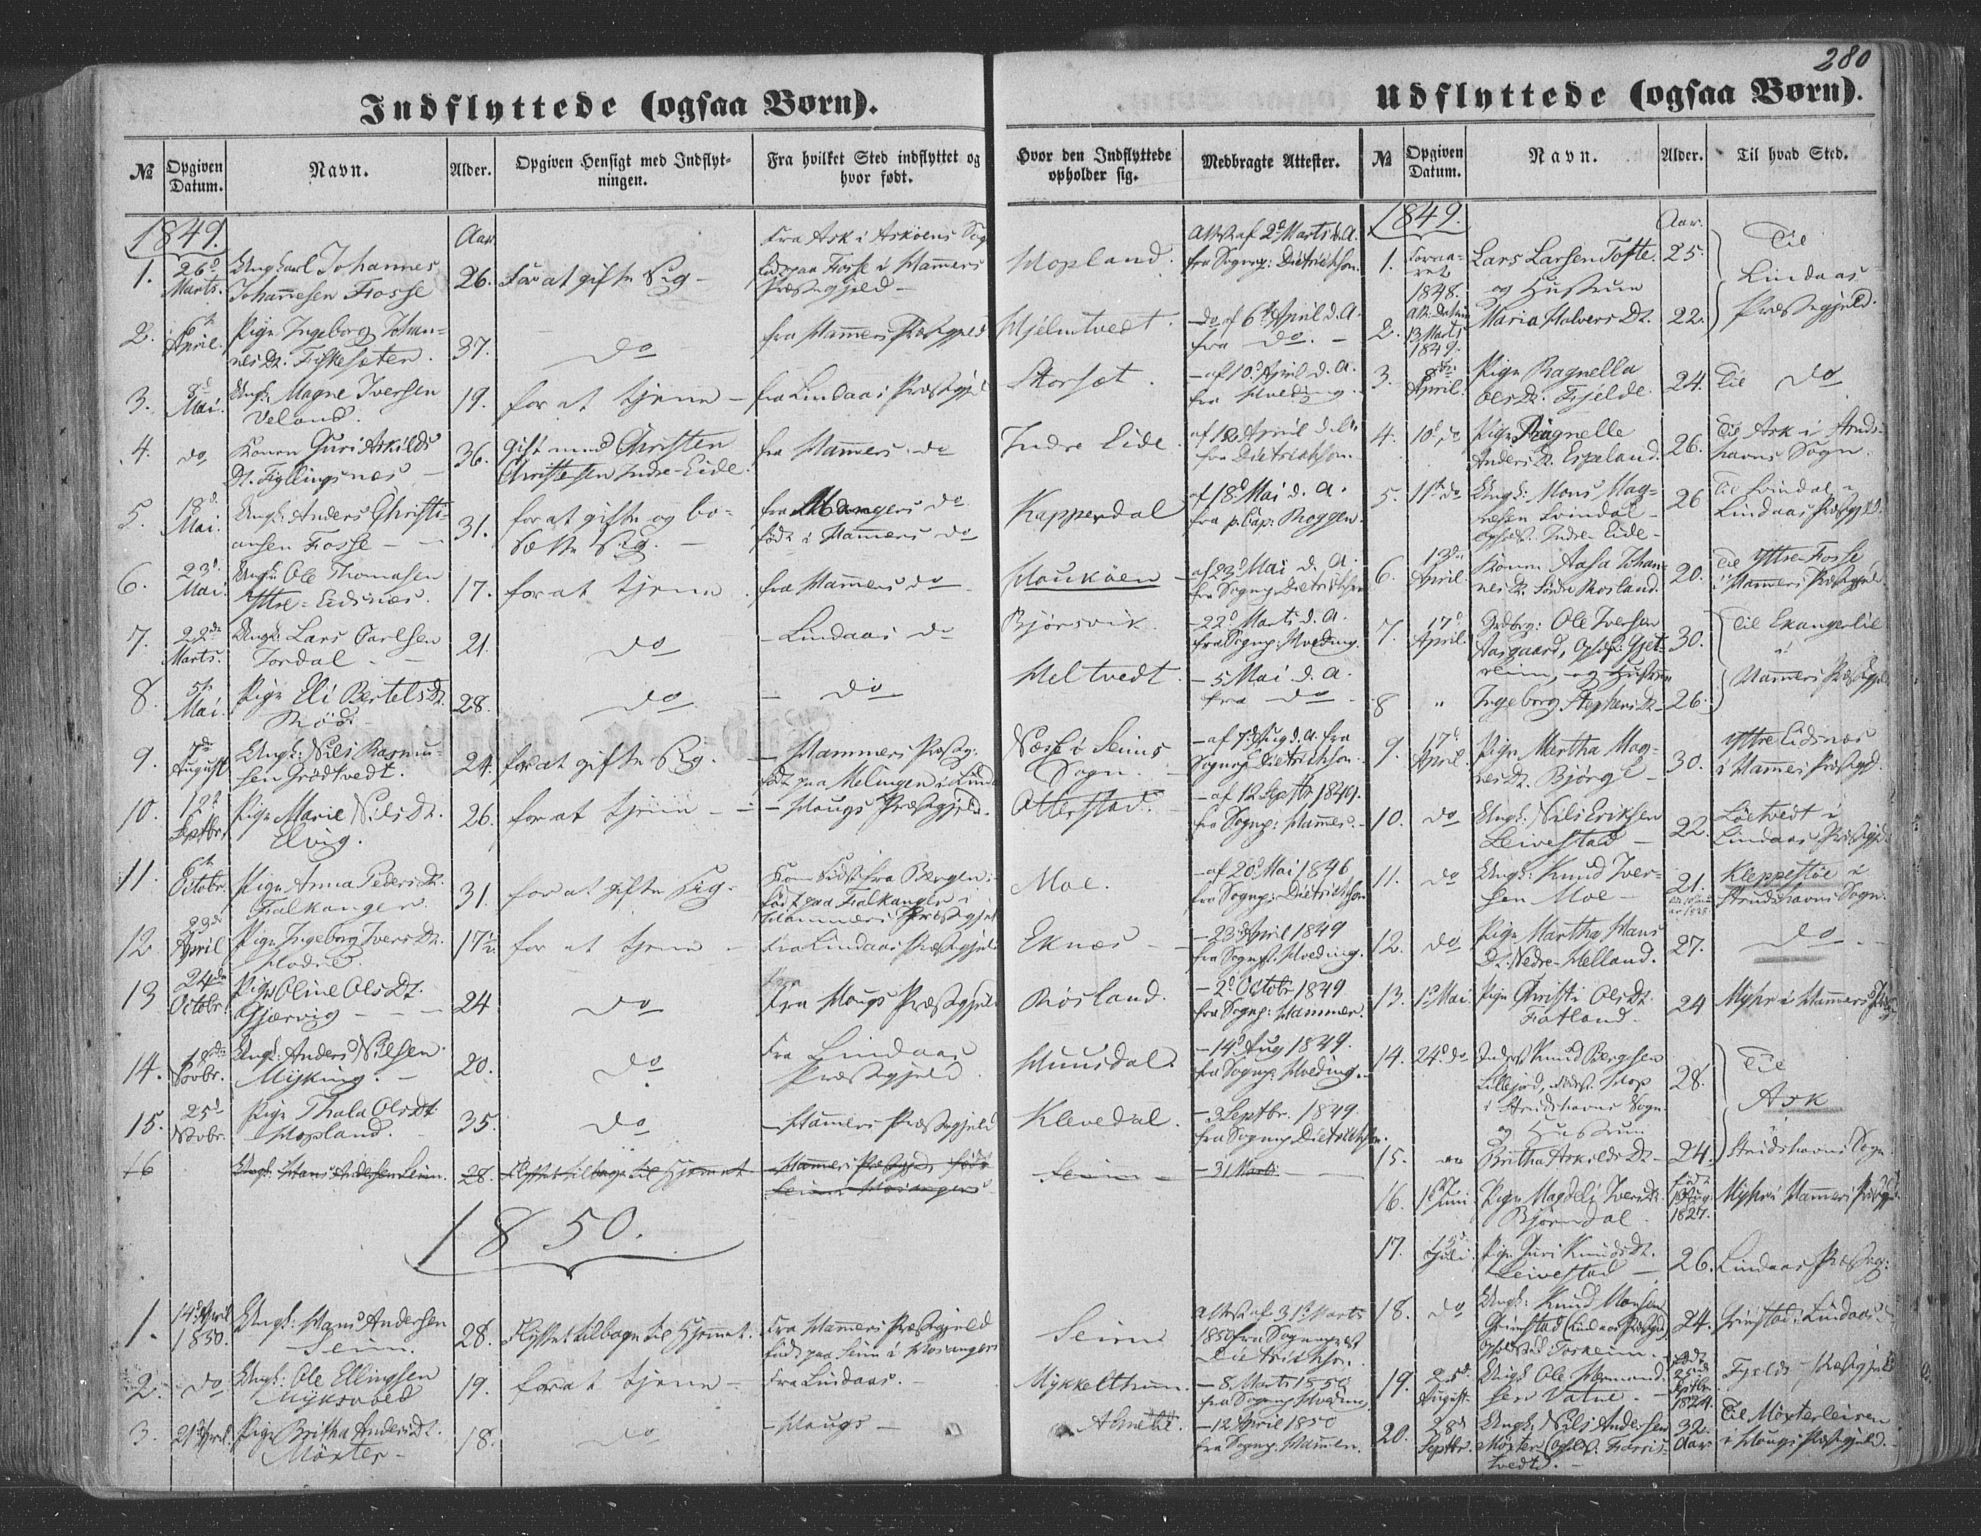 280
Indflyttede (ogsaa Børn).
Udflyttede (ogsaa Børn).
№ Opgiven Datum. Navn. Alder. Opgiven Hensigt med Indflytningen. Fra hvilket Sted indflyttet og hvor født. Hvor den Indflyttede opholder sig. Medbragte Attester.
№ Opgiven Datum. Navn. Alder. Til hvad Sted.
1849. Aar
1. 26d Marts. Ungkarl Johannes Johannesen Fosse 26. For at gifte Sig - Fra Ask i Askøens Sogn født paa Fosse i Hammers Præstegjeld - Hopland. Attest af 2d Marts d. A. fra Sognep: Dietrichson.
2. April. Pige Ingeborg Johannesdt. Fiskeseten. 37. do fra Hammers Præstegjeld Hjelmtvedt. do af 6t April d. A. fra do. -
3. Mai. Ungk: Magne Iversen Veland. 19. for at tjene - fra Lindaas Præstegjeld Storset. - af 10d April d. A. fra Hveding.
4. do Konen Guri Askildsdt. Fyllingsnes - 36. gift med Christen Christensen Indre-Eide. fra Hammers do Indre Eide. fra Dietrichson.
5. 18d. Mai. Ungk: Anders Christiansen Fosse - - 31. for at gifte og bosætte Sig. - fra Mangers do født i Hammers do Kapperdal af 18d Mai d. A. fra p. Cap: Roggen.
6. 23d. Mai. Ungk: Ole Thomasen Yttre-Eidsnes. 17. for at tjene. fra Hammers do - Haukøen - af 23d Mai d. A. fra Sognep: Dietrichson
7. 22de Marts. Ungk: Lars Carlsen Tordal - - 21. do - Lindaas do Bjørsvik. - 22d Marts d. A. fra Sognep: Hveding.
8. 5te Mai. Pige Eli Bertelsdt. 28. do - do Heltvedt. - 5 Mai d. A. fra do -
9. 7de August Ungk: Nils Rasmussen Grødtvedt. 24. for at gifte Sig. - Hammers Præstg: født paa Melingen i Lindaas Næse i Seims Sogn. - - af 7d Aug d. A. fra Sognep Dietrichson.
10. 12te Septbr. Pige Marie Nilsdt. Elvig. 26. for at tjene - - Hougs Præstegjeld. Otterstad. - af 12 Septbr 1849. fra Sognep: Hammer. -
11. 6te Octobr. Pige Anna Pedersdt. Falkanger. 31. for at gifte Sig. Kom sidst fra Bergen: født paa Falkanger i Hammers Præstegjeld Moe. - af 20d Mai 1846 fra Sognep: Dietrichson
12 23de April Pige Ingeborg Iversdt. 17½. for at tjene - Fra Lindaas Præstegjeld Eknæs - - 23d April 1849 fra Sognep. Hveding.
13 24de Octobr. Pige Oline Olsdt. Gjærvig - - - 24 do Fra Hougs Præstegjeld Røsland. - 2d Octobr 1849 fra Sognep: Hammer.
14. Novbr. Ungk: Anders Nilsen Myking. - 20. do Fra Lindaas Præstegjeld. Huusdal. - 14d Aug 1849. fra Sognep: Hveding. -
15. 25d Novbr. Pige Thala Olsdt Hopland. 35. do - Hammers Præstegjeld Klevedal. - 3 Septbr. 1849. fra Sognep Dietrichson.
16 Ungk: Hans Andersen Seim. 28. Flyttet tilbage til Hjemmet. - Hammers Præstegjeld født Seim i Hosanger Seim - - 31 Marts
1850.
1. 14d April 1850. Ungk: Hans Andersen Seim. 28. Flyttet tilbage til Hjemmet. Fra Hammers Præstegjeld født paa Seim i Hosanger Seim Attest af 31t Marts 1850 fra Sognepræst Dietrichson.
2. do Ungk: Ole Ellingsen Myksvold 19. for at tjene - Fra Lindaas. - Mykkelthun. - 8. Marts 1850 fra Sognep Hveding
3. 21d April. Pige Britha Andersdt. Møxter - 18. do - Hougs - - 12 April 1850 fra Sognep Hammer.
1849. Aar.
1. Foraaret 1848. Lars Larsen Tofte. og Hustrue 25. Til Lindaas Præstegjeld.
2. 13 Marts 1849. Maria Halversdt. 22.
3. 8de April. Pige Ragnella Olsdt. Fjelde. 24. Til do
4. 10d do Pige Ragnelle Andersdt. Espeland. 26. Til Ask i Strudshavns Sogn.
5. 11te do Ungk: Mons Magnesen Lvindal - opholdt. Indre-Eide - 26 Til Lvindal i Lindaas Præstegjeld.
6. 13de April. Konen Aasa Johannesdt. Søndre Rosland. 20. Til Yttre-Fosse i Hammers Præstegjeld
7. 17d April. Gdbrg: Ole Iversen Aasgaard, og Hustrue 30. Til Ekangerlie i Hammers Præstegjeld
8 " Ingeborg Stephensdt - 26.
9. 17d April. Pige Martha Magnesdt. Bjørge - 30. Yttre Eidsnes i Hammers Præstegjd.
10. do Ungk. Nils Eriksen Leivestad - 22. Løetvedt i Lindaas Præstegjd.
11. do Ungk: Knud Iversen Moe - 21. Kleppestøe i Strudshavns Sogn.
12. do Pige Martha Hansdt. Nedre-Helland. 27. do -
13. 1d Mai Pige Christi Olsdt. Fatland - 24 Myhr i Hammers
14. 24d do Inderst Knud Bergesen Lillejord, født Hop i Strudshavns Sogn og Hustrue 28. Til Ask
15. do Britha Askildsdt - 24. Strudshavns Sogn
16. Juni Pige Magdeli Iversdt. Bjørndal. født 1827. Myhr i Hammers Præstgj.
17. Juli. Pige Guri Knudsdt. Leivestad - 26. Lindaas Præsteg:
18. do Ungk: Knud Monsen Grimstad (Lindaas Præstgd opholdt Torheim. 24. Grimstad: Lindaas -
19. 25d August. Ungk Ole Hermandsen Vatne. - født 25de Septbr 1824. Fjelds Præstegjeld
20. 28d Septbr. Ungk: Nils Andersen Møxter (opholdt. Forristvedt. - 32 Aar Til Møxterleiren i Hougs Præstegjeld.